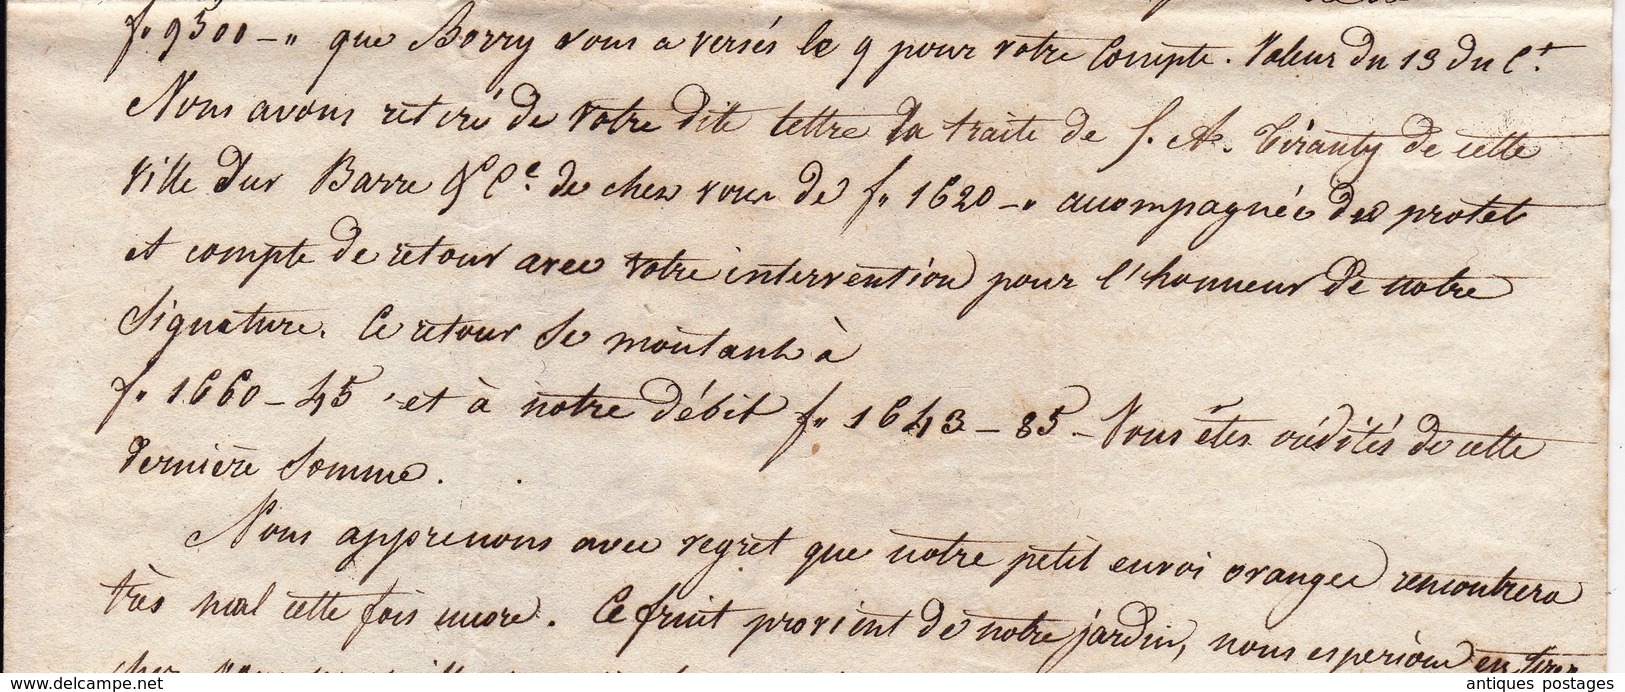 f. 9500 - " que Borry vous a versés le 9 pour votre Compte. Valeur du 13 du Ct.
Nous avons retiré de votre dite lettre la traite de J. A. Tiranty de cette
ville sur Barre & Ce. de chez vous de f. 1620 - " accompagnée des protet
et compte de retour avec votre intervention pour l'honneur de notre
signature. Ce retour se montant à
f. 1660 - 45 et à notre débit f. 1643 - 85 - Vous êtes crédités de cette
dernière Somme.
Nous apprenons avec regret que notre petit envoi oranges rencontrera
très mal cette fois encore. Ce fruit provient de notre jardin, nous espérions en tirer
chez
antiques postages